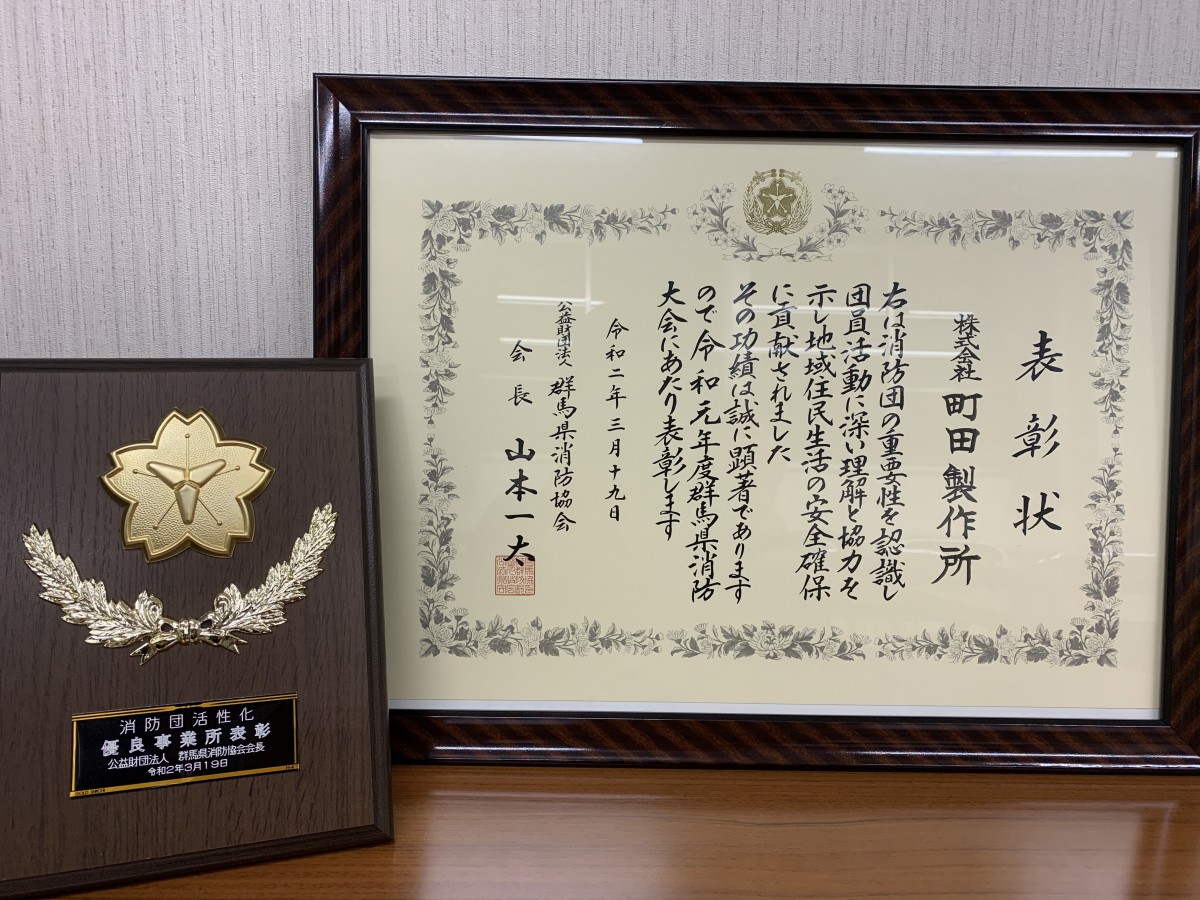 表彰状
株式会社 町田製作所
右は消防団の重要性を認識し
団員活動に深い理解と協力を
示し地域住民生活の安全確保
に貢献されました
その功績は誠に顕著であります
ので令和元年度群馬県消防
大会にあたり表彰します
令和二年三月十九日
公益財団法人 群馬県消防協会
会長 山本一太
消防団活性化
優良事業所表彰
公益財団法人 群馬県消防協会会長
令和2年3月19日